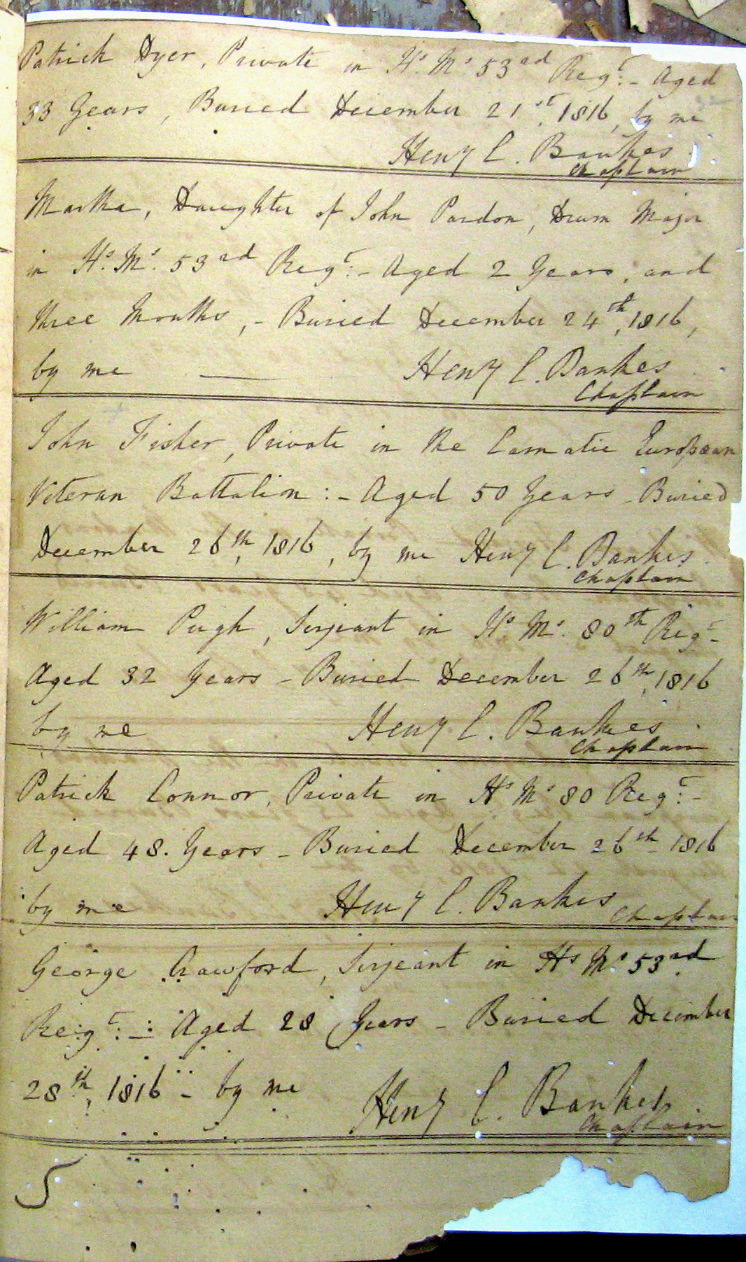 Patrick Dyer, Private in H.s M.s 53rd Regt:- Aged
33 Years, Buried December 21st, 1816, by me
Henry C. Bankes
Chaplain
Martha, Daughter of John Pardon, Drum Major
in H.s M.s 53rd Regt:- Aged 2 Years, and
three Months,- Buried December 24th, 1816,
by me — Henry C. Bankes
Chaplain
John Fisher, Private in the Carnatic European
Veteran Battalion:- Aged 50 Years - Buried
December 26th, 1816, by me Henry C. Bankes
Chaplain
William Pugh, Serjeant in H.s M.s 80th Regt-
Aged 32 Years - Buried December 26th, 1816
by me Henry C. Bankes
Chaplain
Patrick Connor, Private in H.s M.s 80 Regt:-
Aged 48. Years - Buried December 26th 1816
by me Henry C. Bankes Chaplain
George Crawford, Serjeant in Hs M.s 53rd
Regt:- Aged 28 Years - Buried December
28th, 1816 - by me Henry C. Bankes
Chaplain
5